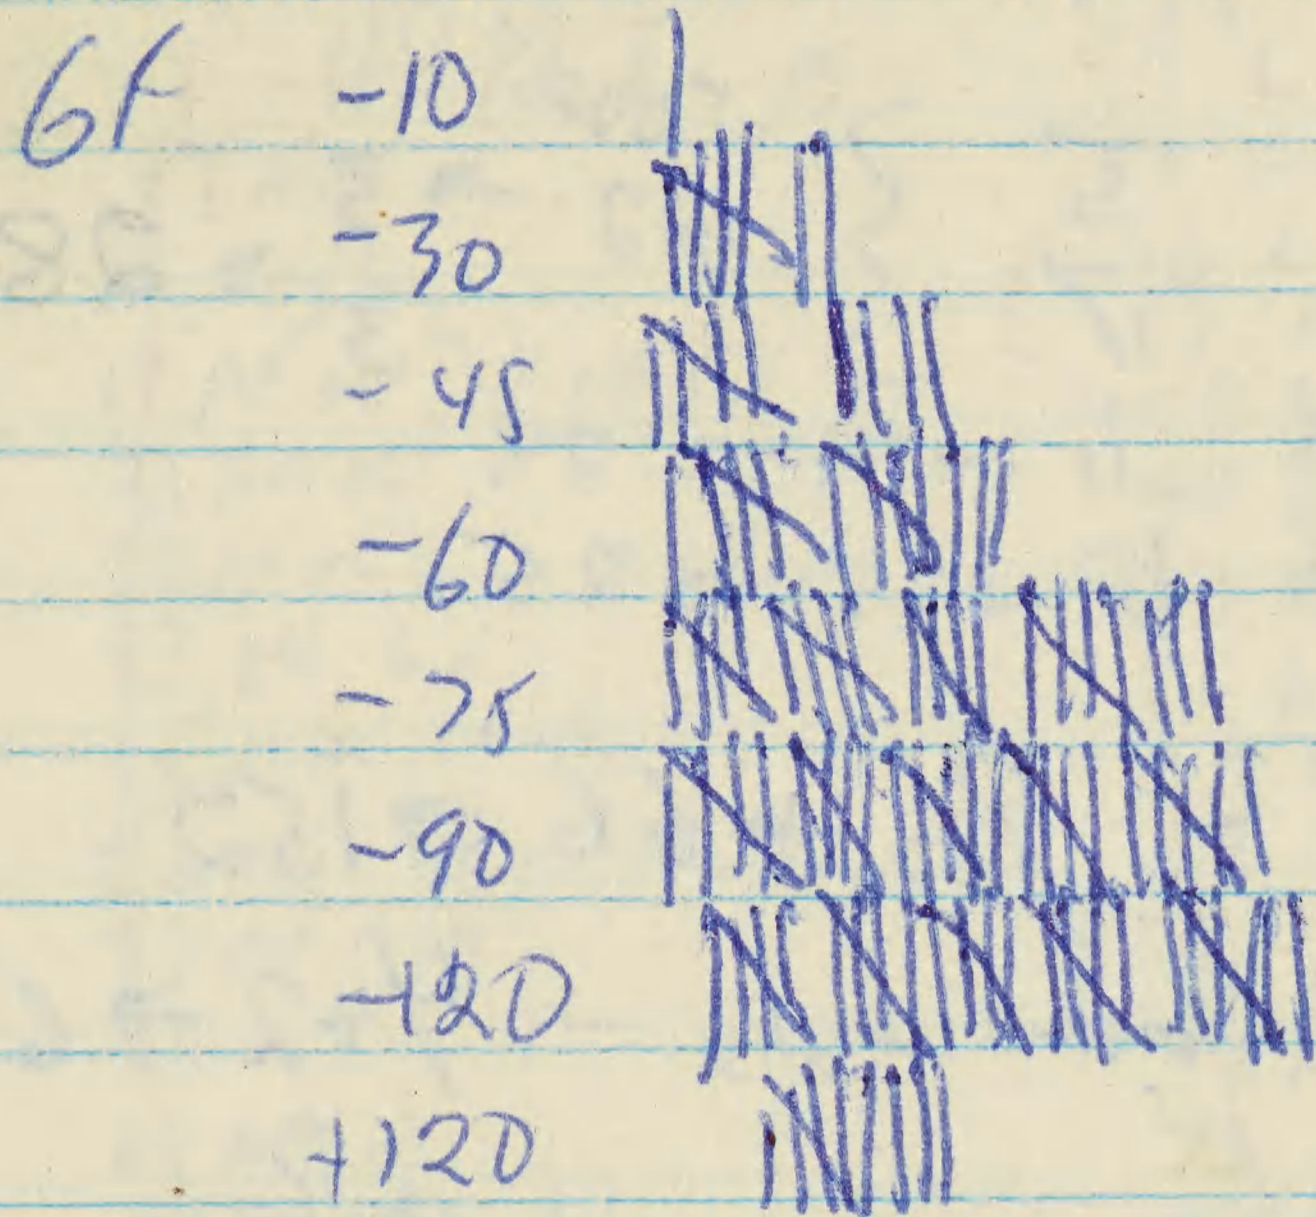 6F -10 |
-30 |||| ||
-45 |||| ||||
-60
-75
-90
-120
+120